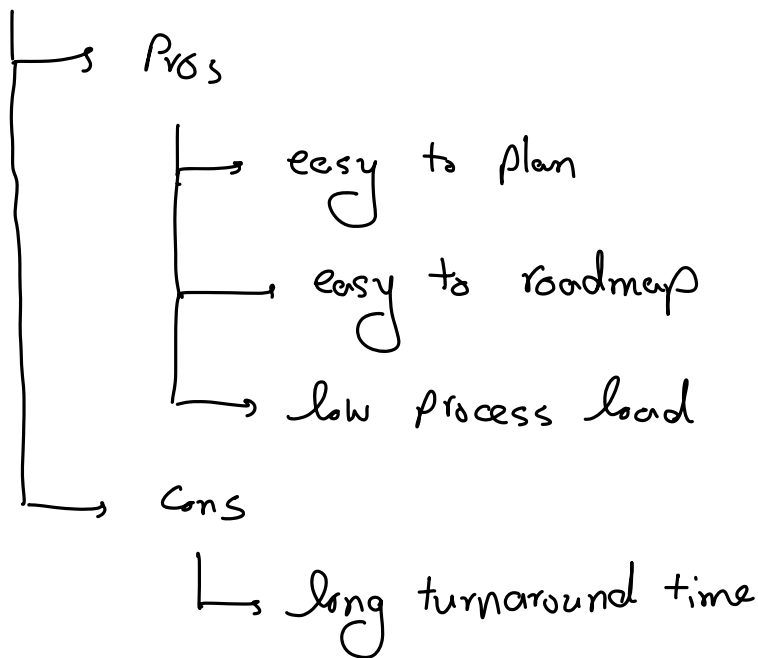 Pros
easy to plan
easy to roadmap
low process load
Cons
long turnaround time